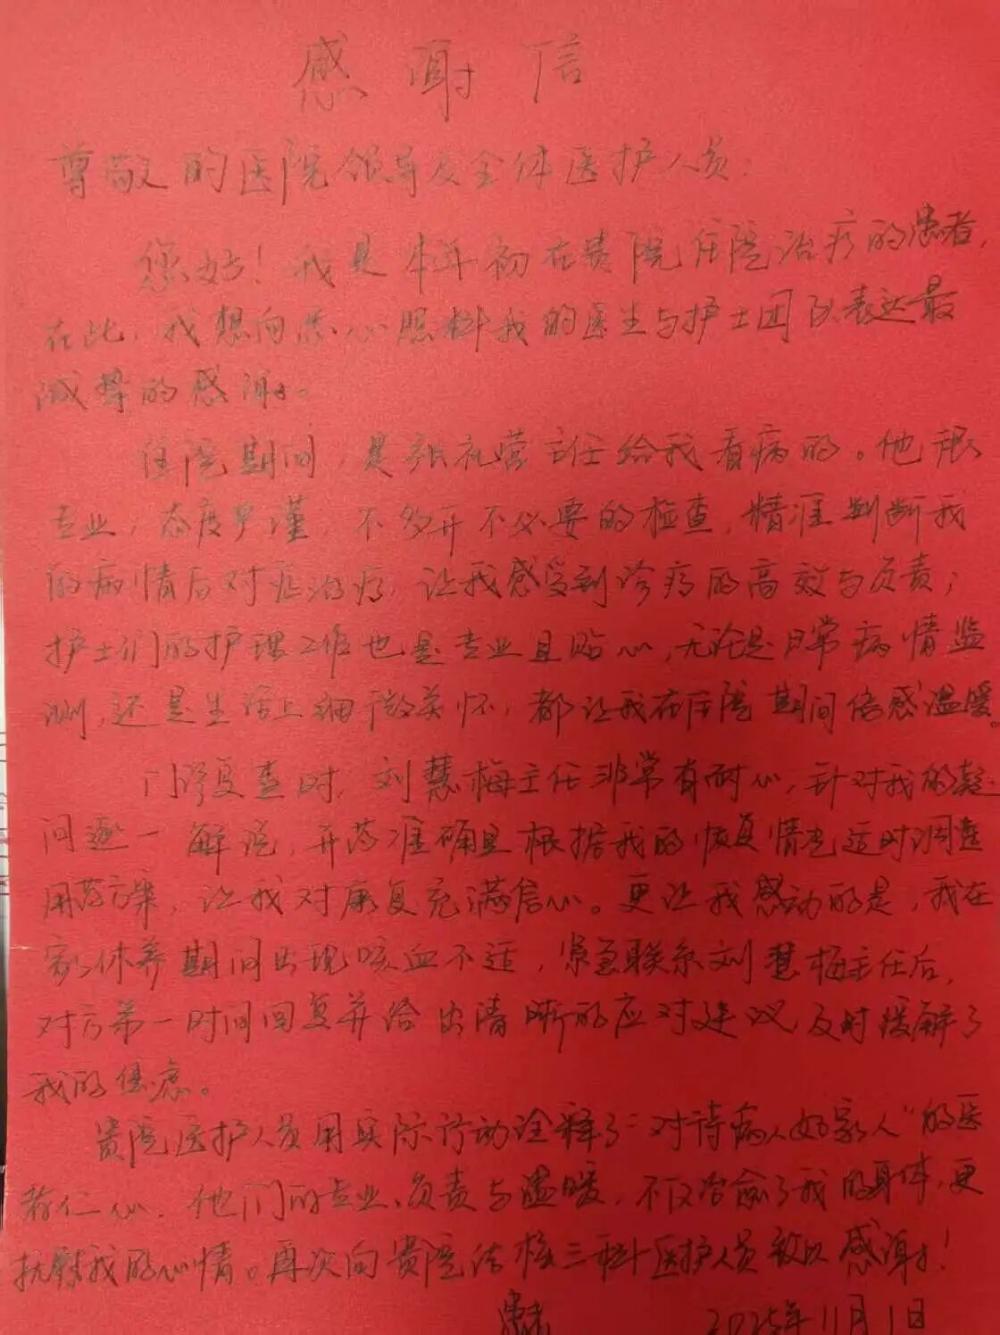 感谢信
尊敬的医院领导及全体医护人员：
您好！我是本年初在贵院住院治疗的患者，
在此，我想向悉心照料我的医生与护士团队表达最
诚挚的感谢。
住院期间，是张在营主任给我看病的。他很
专业，态度严谨，不多开不必要的检查，精准判断我
的病情后对症治疗，让我感受到诊疗的高效与负责；
护士们的护理工作也是专业且贴心，无论是日常病情监
测，还是生活上细微关怀，都让我在住院期间倍感温暖。
门诊复查时，刘慧梅主任非常有耐心，针对我的疑
问逐一解说，开药准确且根据我的恢复情况适时调整
用药方案，让我对康复充满信心。更让我感动的是，我在
家休养期间出现咳血不适，紧急联系刘慧梅主任后，
对方第一时间回复并给出清晰的应对建议及时缓解了
我的焦虑。
贵院医护人员用实际行动诠释了“对待病人如家人”的医
者仁心，他们的专业、负责与温暖，不仅治愈了我的身体，更
抚慰我的心情。再次向贵院结核三科医护人员致以感谢！
患者 2025年11月1日